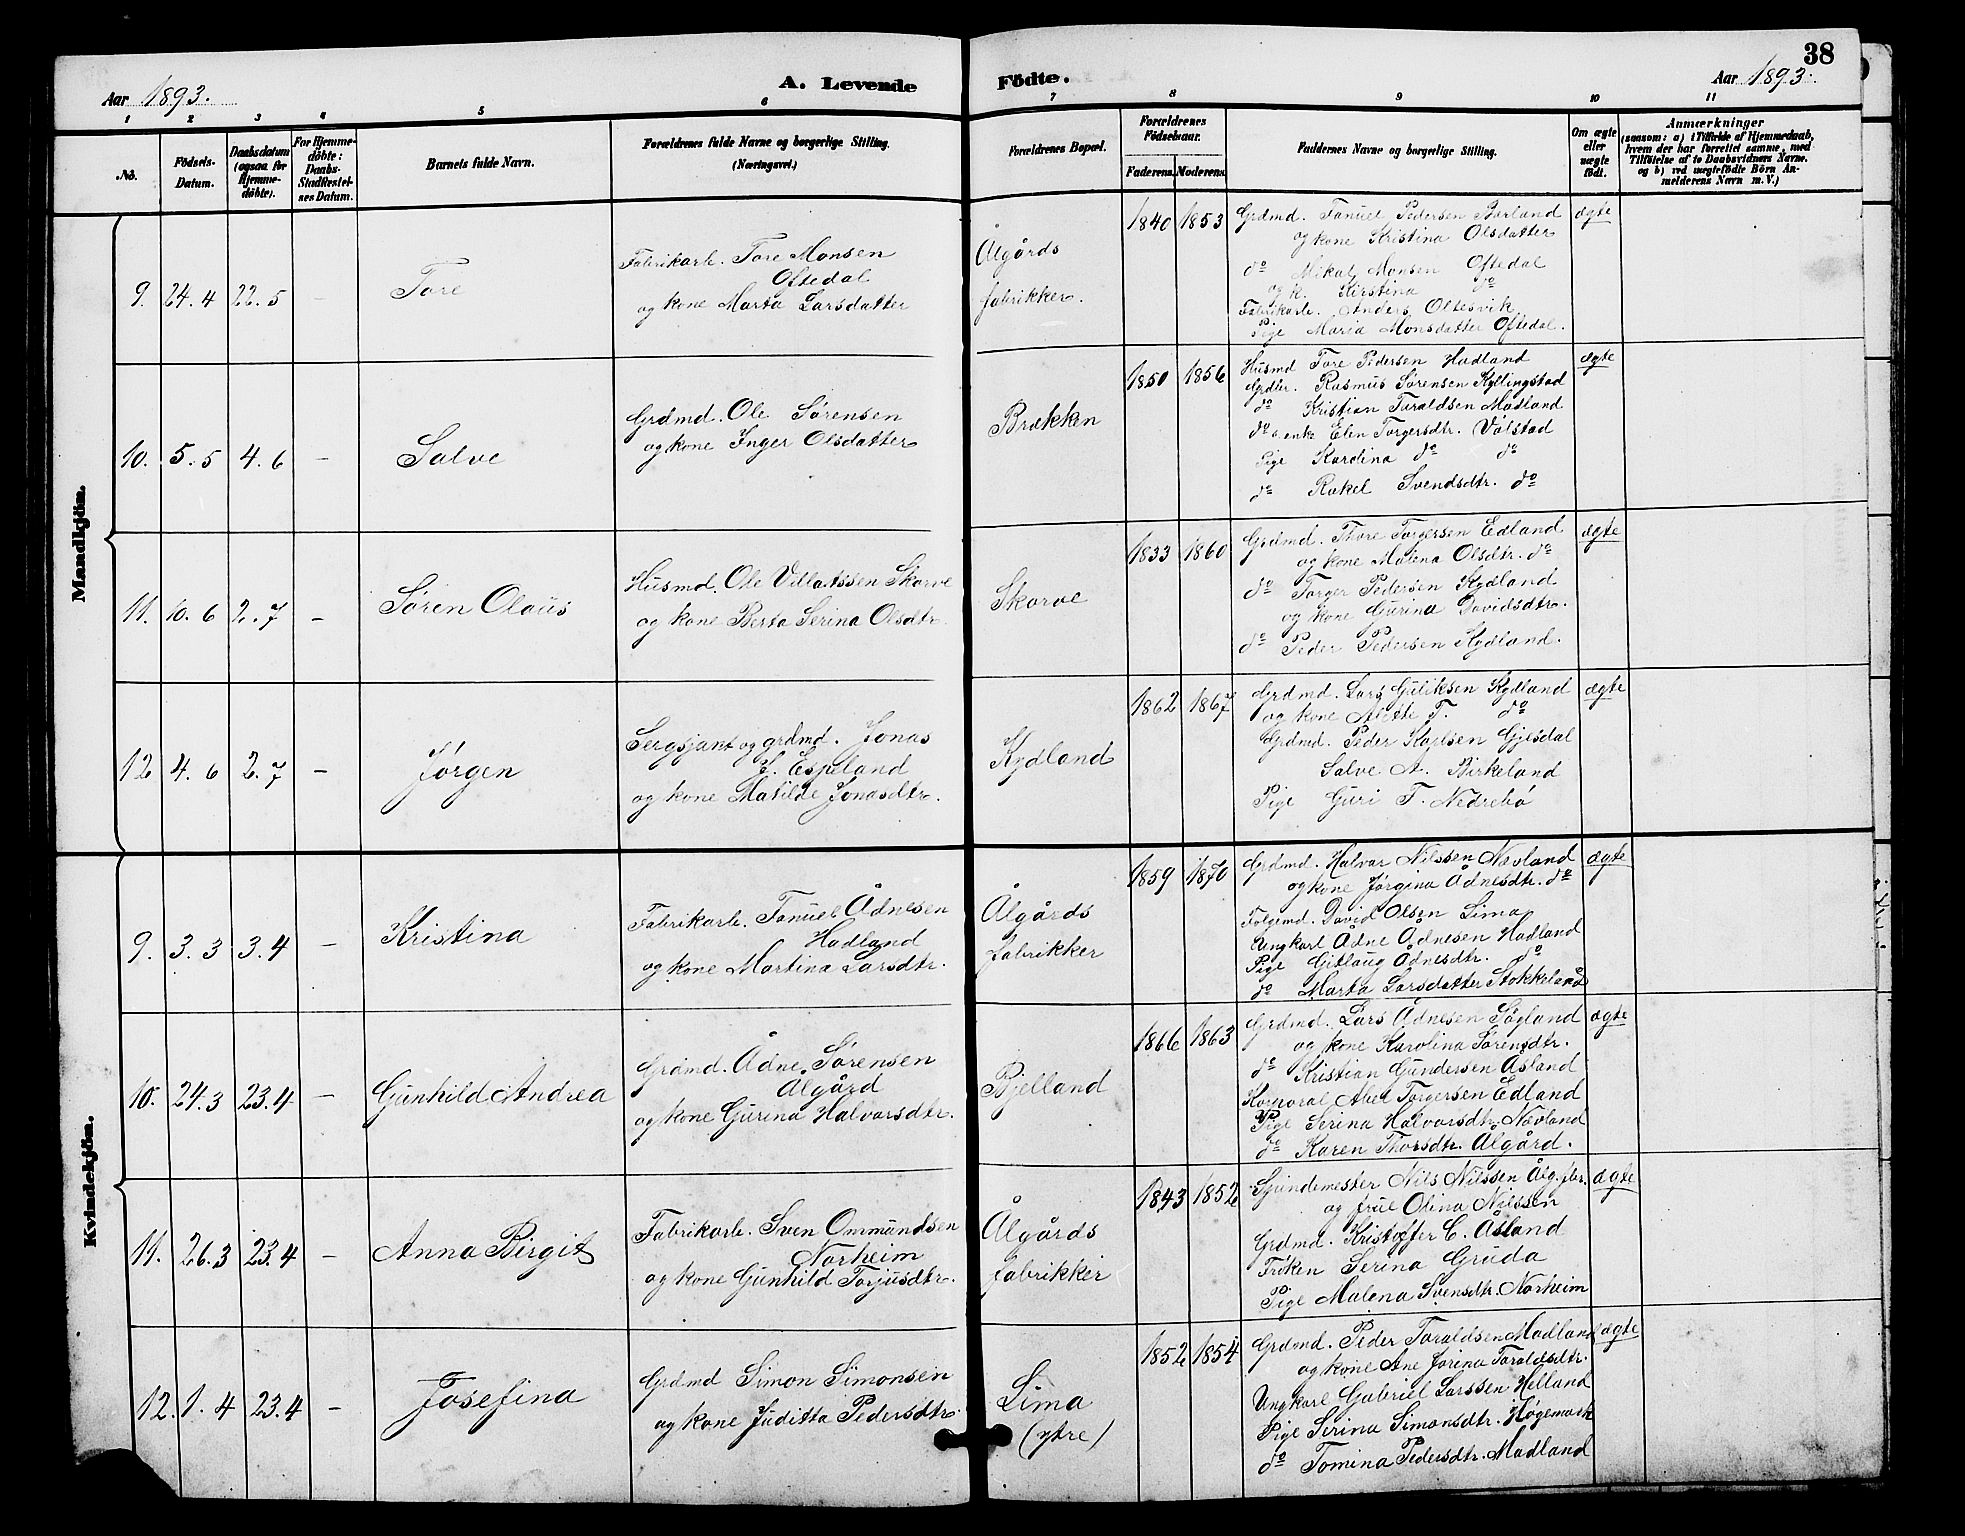 38
Aar 1893.
A. Levende Födte.
Aar 1893.
1 2 3 4 5 6 7 8 9 10 11
No.
Födsels-
Datum.
Daabsdatum
(ogsaa for
Hjemme-
döbte).
For Hjemme-
döbte:
Daabs-
Stadfæstel-
ses Datum.
Barnets fulde Navn.
Forældrenes fulde Navne og borgerlige Stilling.
(Næringsvei.)
Forældrenes Bopæl.
Forældrenes
Födselsaar.
Faderens. Moderens.
Faddernes Navne og borgerlige Stilling.
Om ægte
eller
uægte
födt.
Anmærkninger
(saasom: a) i Tilfælde af Hjemmedaab,
hvem der har forrettet samme, med
Tilföielse af to Daabsvidners Navne.
og b) ved uægtefödte Börn An-
melderens Navn m. V.)
Mandkjön.
9. 24.4 22.5 – Tore
Fabrikarb. Tore Monsen
Oftedal
og kone Marta Larsdatter
Ålgårds
fabrikker.
1840 1853
Grdmd. Tanuel Pedersen Borland
og kone Kristina Olsdatter
do Mikal Monsen Oftedal
og k. Kirstina do
Fabrikarb. Anders Oltesvik
Pige Maria Monsdatter Oftedal.
ægte
10. 5.5 4.6 – Salve
Grdmd. Ole Sørensen
og kone Inger Olsdatter
Brækken
1850 1856
Husmd Tore Pedersen Hadland
Grdbr. Rasmus Sørensen Kyllingstad
do Kristian Taraldsen Madland
do s. enke Elen Torgersdtr.Válstad
Pige Karolina do do
do Rakel Svendsdtr. do
ægte
11. 10.6 2.7 – Søren Olaus
Husmd. Ole Villatssen Skorve
og kone Berta Serina Olsdtr.
Skorve
1833 1860
Grdmd. Thore Torgersen Edland
og kone Malena Olsdtr. do
do Torger Pedersen Kydland
og kone Gurina Davidsdtr.
do Peder Pedersen Kydland.
ægte
12 4.6 2.7 – Jørgen
Sergsjant og grdmd. Jonas
J. Espeland
og kone Matilde Jonasdtr.
Kydland
1862 1867
Grdmd. Lars Guliksen Kydland
og kone Alette T. do
Grdmd. Peder Karlsen Gjesdal
Salve A. Birkeland
Pige Guri T. Nedrebø
ægte
Kvindekjön.
9. 3.3 3.4 – Kristina
Fabrikarb. Tanuel Ådnesen
Hadland
og kone Martina Larsdtr.
Ålgårds
fabrikker
1859 1870
Grdmd. Halvar Nilssen Nævland
og kone Jørgina Ådnesdtr. do
Folgemd. David Olsen Lima
Ungkarl Ådne Ådnesen Hadland
Pige Gitlaug Ådnesdtr. do
do Marta Larsdatter Stokkeland
ægte
10. 24.3 23.4 – Gunhild Andrea
Grdmd. Ådne Sørensen
Ålgård
og kone Gurina Halvarsdtr.
Bjelland
1866 1863
Grdmd. Lars Ådnesen Søyland
og kone Karolina Sørensdtr.
do Kristian Gundersen Åsland
Korporal Abel Torgersen Edland
Pige Serina Halvorsdtr. Nævland
do Karen Thorsdtr. Ålgård.
ægte
11. 26.3 23.4 – Anna Birgit
Fabrikarb. Sven Ommundsen
Norheim
og kone Gunhild Torjusdtr.
Ålgårds
fabrikker
1843 1852
Spindemester Nils Nilssen Ålg. fbr.
og frue Olina Nilssen
Grdmd. Kristoffer C. Åsland
Frøken Serina Gruda
Pige Malena Svensdtr. Norheim
ægte
12. 1.4 23.4 – Josefina
Grdmd Simon Simonsen
og kone Juditta Pedersdtr.
Lima
(ytre)
1852 1854
Grdmd. Peder Taraldsen Madland
og kone Ane Jorina Taraldsdtr.
Ungkarl Gabriel Larssen Helland
Pige Serina Simonsdtr. Høgemark
do Tomina Pedersdtr. Madland
ægte